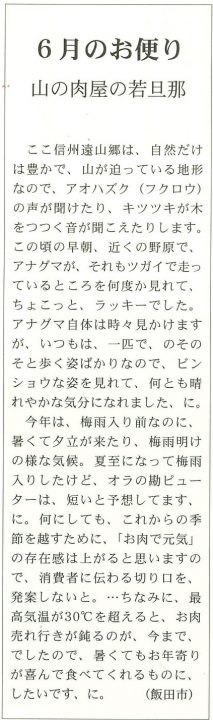 ６月のお便り
山の肉屋の若旦那
ここ信州遠山郷は、自然だけ
は豊かで、山が迫っている地形
なので、アオハズク（フクロウ）
の声が聞けたり、キツツキが木
をつつく音が聞こえたりします。
この頃の早朝、近くの野原で、
アナグマが、それもツガイで走っ
ているところを何度か見れて、
ちょこっと、ラッキーでした。
アナグマ自体は時々見かけます
が、いつもは、一匹で、のそのそ
と歩く姿ばかりなので、ビン
ショウな姿を見れて、何とも晴
れやかな気分になれました、に。
今年は、梅雨入り前なのに、
暑くて夕立が来たり、梅雨明け
の様な気候。夏至になって梅雨
入りしたけど、オラの勘ピュー
ターは、短いと予想してます、
に。何にしても、これからの季
節を越すために、「お肉で元気」
の存在感は上がると思いますの
で、消費者に伝わる切り口を、
発案しないと。…ちなみに、最
高気温が30℃を超えると、お肉
売れ行きが鈍るのが、今まで、
でしたので、暑くてもお年寄り
が喜んで食べてくれるものに、
したいです、に。　（飯田市）